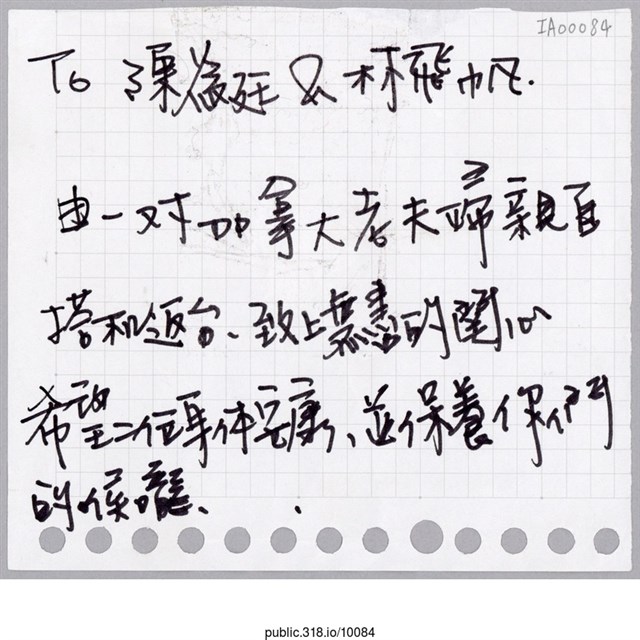 IA00084
To 陳為廷 & 林飛帆.
由一对加拿大老夫婦親自
搭机返台、致上無盡的関心
希望二位身体安康、並保養你們
的喉嚨、
public.318.io/10084